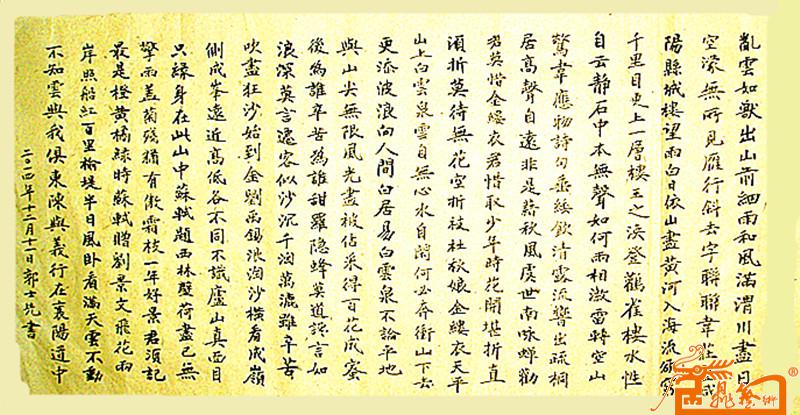 亂雲如獸出山前細雨和風滿渭川盡日
空濛無所見雁行斜去字聯聯韋莊登咸
陽縣城樓望雨白日依山盡黃河入海流欲窮
千里目更上一層樓王之渙登鸛雀樓水性
自云靜石中本無聲如何兩相激雷轉空山
驚韋應物詩句垂緌飲清露流響出疏桐
居高聲自遠非是藉秋風虞世南咏蟬勸
君莫惜金縷衣君惜取少年時花開堪折直
須折莫待無花空折枝杜秋娘金縷衣天平
山上白雲泉雲自無心水自閑何必奔衝山下去
更添波浪向人間白居易白雲泉不論平地
與山尖無限風光盡被佔采得百花成蜜
後為誰辛苦為誰甜羅隱蜂莫道讒言如
浪深莫言遷客似沙沉千淘萬漉雖辛苦
吹盡狂沙始到金劉禹錫浪淘沙橫看成嶺
側成峯遠近高低各不同不識廬山真面目
只緣身在此山中蘇軾題西林壁荷盡已無
擎雨蓋菊殘猶有傲霜枝一年好景君須記
最是橙黃橘綠時蘇軾贈劉景文飛花兩
岸照船紅百里榆堤半日風卧看滿天雲不動
不知雲與我俱東陳與義行在襄陽道中
二〇一四年十二月十二日郭士先書